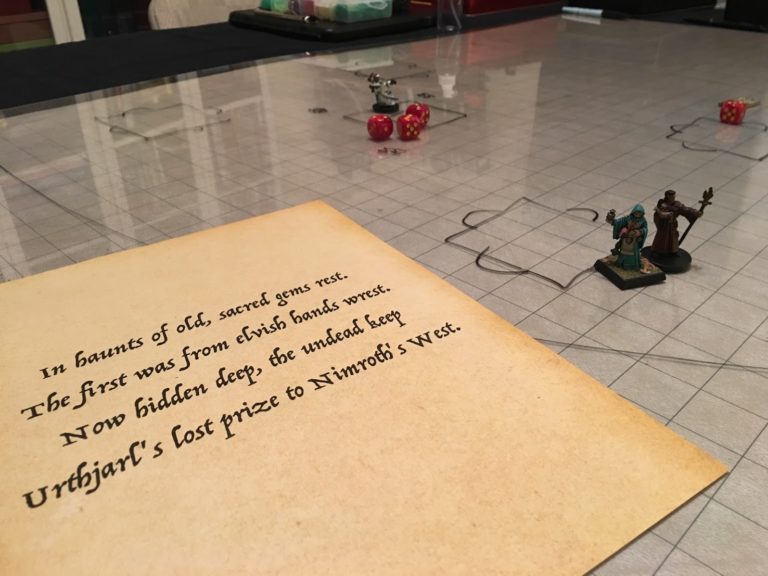 In haunts of old, sacred gems rest.
The first was from elvish hands wrest.
Now hidden deep, the undead keep
Urthjarl's lost prize to Nimroth's West.